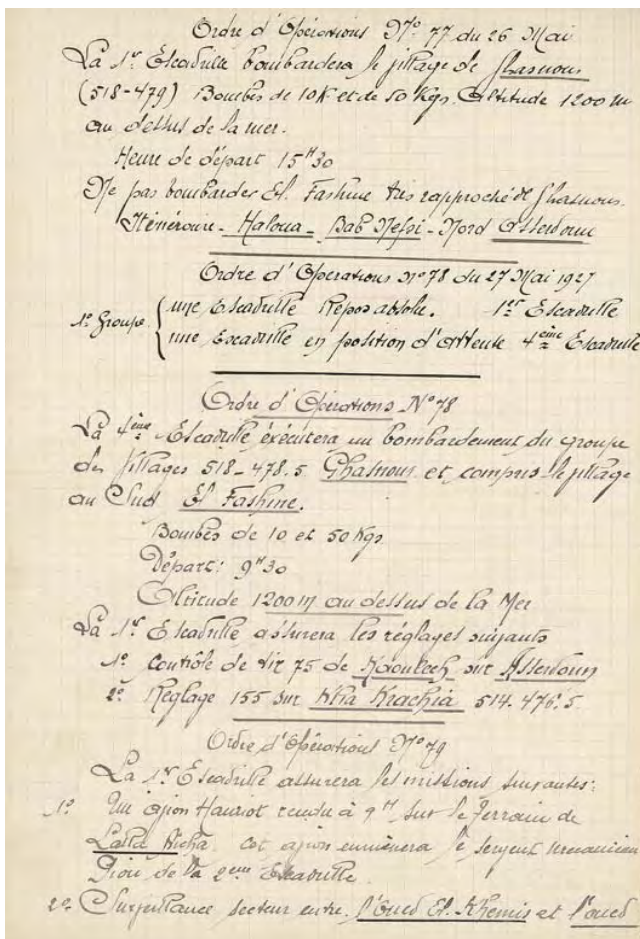 Ordre d'Opérations N° 77 du 26 Mai
La 1re Escadrille bombardera le village de Ghasnous
(518-479) Bombes de 10K et de 50 Kgs. Altitude 1200 m
au dessus de la mer.
Heure de départ 15H30
Ne pas bombarder El Fashine très rapproché de Ghasnous.
Itinéraire - Haloua - Bab - Nord Asserdoun
Ordre d'Opérations N° 78 du 27 Mai 1927
1er Groupe { une Escadrille Repos absolu. 1re Escadrille
une Escadrille en position d'attente 4ème Escadrille
Ordre d'Opérations N° 78
La 4ème Escadrille éxécutera un bombardement du groupe
des villages 518-478.5 Ghasnous et compris le village
au Sud El Fashine.
Bombes de 10 et 50 Kgs
Départ: 9H30
Altitude 1200 m au dessus de la Mer
La 1re Escadrille assurera les réglages suivants
1° Contrôle de tir 75 de sur Asserdoun
2° Réglage 155 sur Krachia 514.476.5
Ordre d'Opérations N° 79
La 1re Escadrille assurera les missions suivantes:
1° Un avion Hanriot rendu à 9H sur le Terrain de
Lalla Aicha cet avion emmènera le sergent mécanicien
de la 2eme Escadrille.
2° Surveillance secteur entre l'Oued El Khemis et l'oued